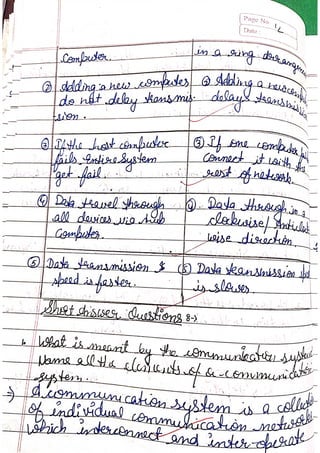 Page No. 12
Date
Computer.
in a ring
② Adding a new computer
do not delay transmis-
sion.
② Adding a new
delays transmission
③ If the host computer
fails, entire system
get fail.
③ If one computer
connect it with the
rest of network.
④ Data travel through
all devices via hub
computer.
④ Data through in a
clockwise/Anticlock
wise direction.
⑤ Data transmission &
speed is faster.
⑤ Data transmission
is slower.
Short Answer Questions 8-)
1. What is meant by the communication system
Name all the elements of a communication
system.
⇒ A communication system is a collect
of individual communication network
which interconnect and inter-operate